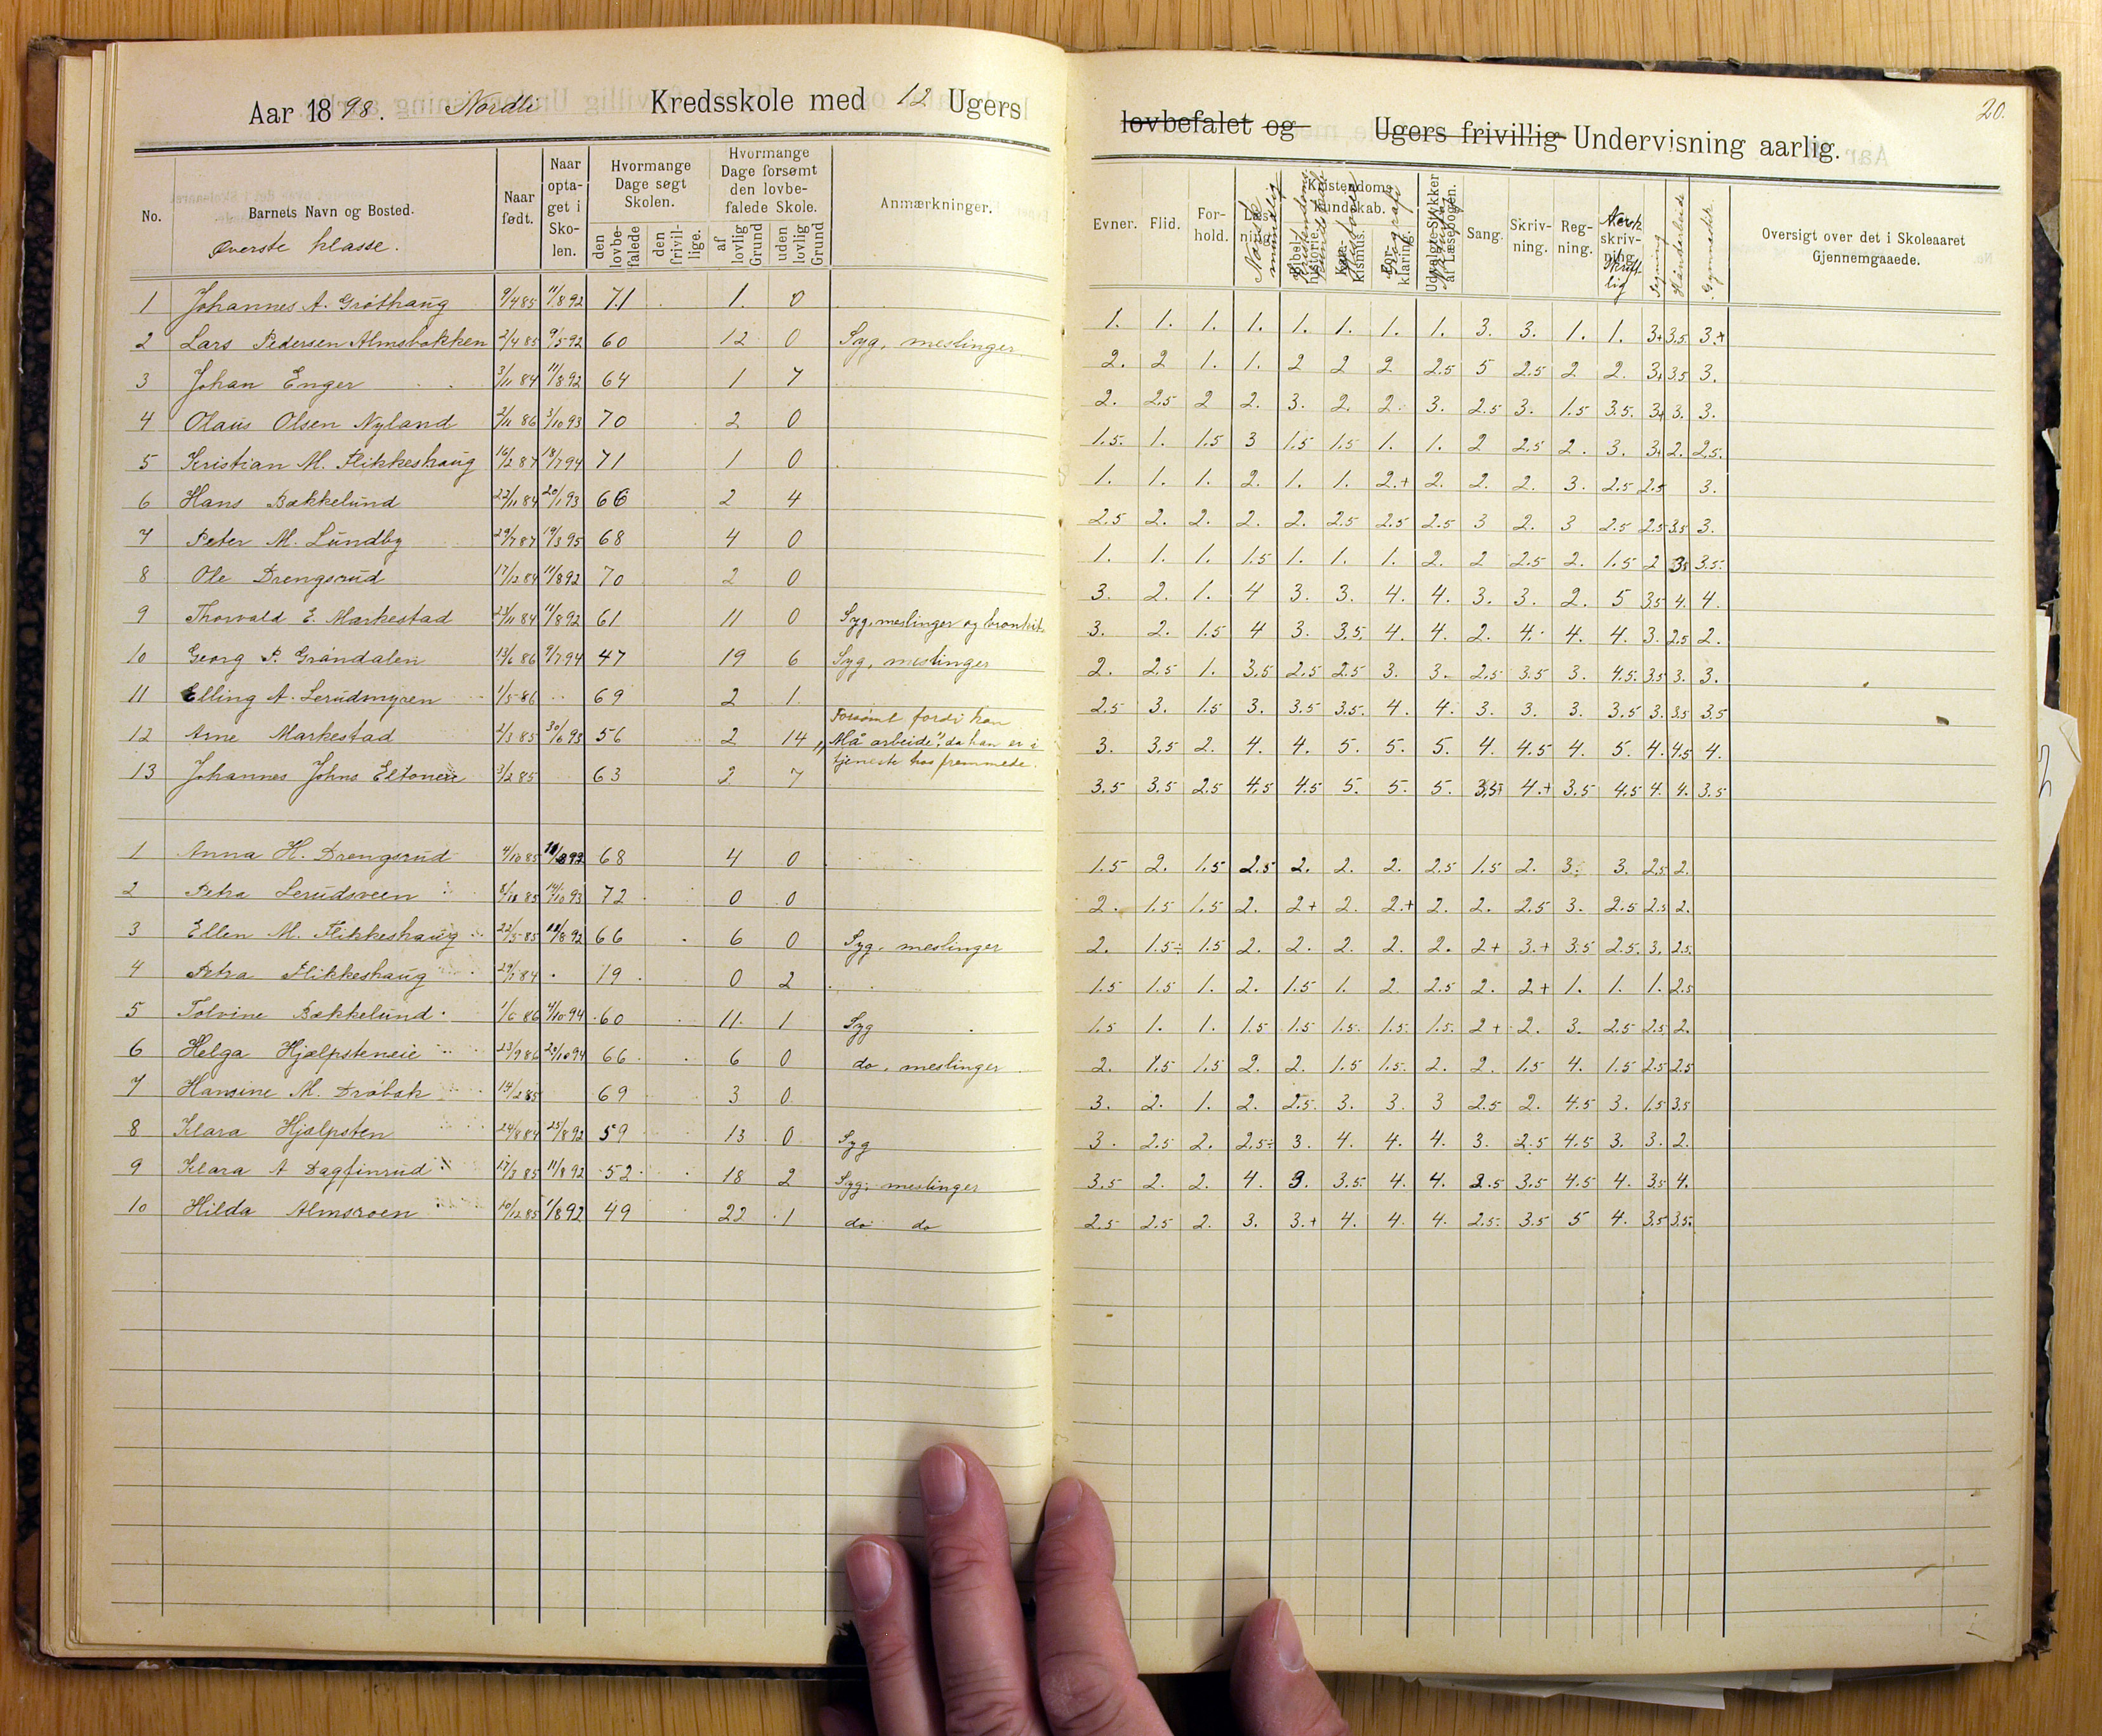 Aar 1898. Nordli Kredsskole med 12 Ugers
No.
Barnets Navn og Bosted.
Øverste klasse.
Naar født.
Naar opta- get i Sko- len.
Hvormange Dage søgt Skolen.
den lovbe- falede
den frivil- lige.
Hvormange Dage forsømt den lovbe- falede Skole.
af lovlig Grund
uden lovlig Grund
Anmærkninger.
1 Johannes A. Grøthaug 9/4 85 11/8 92 71 1. 0
2 Lars Pedersen Almsbakken 2/4 85 9/5 92 60 12 0 Syg, meslinger
3 Johan Enger 3/11 84 11/8 92 64 1 7
4 Olaus Olsen Nyland 2/11 86 3/10 93 70 2 0
5 Kristian M. Flikkeshaug 16/2 87 18/7 94 71 1 0
6 Hans Bækkelund 22/11 84 20/1 93 66 2 4
7 Peter M. Lundby 29/7 87 19/3 95 68 4 0
8 Ole Drengsrud 17/12 84 11/8 92 70 2 0
9 Thorvald E. Markestad 23/11 84 11/8 92 61 11 0 Syg, meslinger og bronkit.
10 Georg P. Grándalen 13/6 86 9/7 94 47 19 6 Syg, meslinger
11 Elling A. Lerudmyren 1/5 86 69 2 1.
12 Arne Markestad 2/3 85 30/6 93 56 2 14 Forsømt fordi han
„Må arbeide", da han er i
tjeneste hos fremmede.
13 Johannes Johns Eltoneie 3/2 85 63 2 7
1 Anna H. Drengsrud 4/10 85 11/8 92 68 4 0
2 Petra Lerudsveen 85 14/10 93 72 0 0
3 Ellen M. Flikkeshaug 22/5 85 11/8 92 66 6 0 Syg, meslinger
4 Petra Flikkeshaug 84 19 0 2
5 Tolvine Bækkelund 1/6 86 4/10 94 60 11 1 Syg
6 Helga Hjælpsteneie 23/9 86 20/10 94 66 6 0 do, meslinger
7 Hansine M. Drøbak 14/2 85 69 3 0
8 Klara Hjælpsten 24/8 84 25/8 92 59 13 0 Syg
9 Klara A Dagfinrud 17/3 85 11/8 92 52 18 2 Syg, meslinger
10 Hilda Almsroen 10/12 85 1/8 92 49 22 1 do do
20.
lovbefalet og Ugers frivillig Undervisning aarlig.
Evner.
Flid.
For- hold.
Læs- ning.
Norsk mundtlig
Kristendoms- kundskab.
Bibel- historie.
Kristendoms kundskab
Kate- kismus.
For- klaring.
Geografi
Udvalgte Stykker af Læsebogen.
Sang.
Skriv- ning.
Reg- ning.
Norsk skriv- ning.
Skrift- lig
Tegning
Håndarbeide
Gymnastik
Oversigt over det i Skoleaaret Gjennemgaaede.
1. 1. 1. 1. 1. 1. 1. 1. 3. 3. 1. 1. 3+ 3.5 3.+
2. 2 1. 1. 2 2 2 2.5 5 2.5 2 2. 3+ 3.5 3.
2. 2.5 2 2. 3. 2. 2. 3. 2.5 3. 1.5 3.5. 3+ 3. 3.
1.5. 1. 1.5 3 1.5 1.5 1. 1. 2 2.5 2. 3. 3+ 2. 2.5.
1. 1. 1. 2. 1. 1. 2.+ 2. 2. 2. 3. 2.5 2.5 3.
2.5 2. 2. 2. 2. 2.5 2.5 2.5 3 2. 3 2.5 2.5 3.5 3.
1. 1. 1. 1.5 1. 1. 1. 2. 2 2.5 2. 1.5 2 3.5.
3. 2. 1. 4 3. 3. 4. 4. 3. 3. 2. 5 3.5 4. 4.
3. 2. 1.5 4 3. 3.5 4. 4. 2. 4. 4. 4. 3. 2.5 2.
2. 2.5 1. 3.5 2.5 2.5 3. 3. 2.5 3.5 3. 4.5. 3.5 3. 3.
2.5 3. 1.5 3. 3.5 3.5. 4. 4. 3. 3. 3. 3.5 3. 3.5 3.5
3. 3.5 2. 4. 4. 5. 5. 5. 4. 4.5 4. 5. 4. 4.5 4.
3.5 3.5 2.5 4.5 4.5 5. 5. 5. 3.5+ 4.+ 3.5 4.5 4. 4. 3.5
1.5 2. 1.5 2.5 2. 2. 2. 2.5 1.5 2. 3. 3. 2.5 2.
2. 1.5 1.5 2. 2+ 2. 2.+ 2. 2. 2.5 3. 2.5 2.5 2.
2. 1.5÷ 1.5 2. 2. 2. 2. 2. 2+ 3.+ 3.5 2.5. 3. 2.5.
1.5 1.5 1. 2. 1.5 1. 2 2.5 2. 2+ 1. 1. 1. 2.5
1.5 1. 1. 1.5 1.5 1.5. 1.5. 1.5. 2+ 2. 3. 2.5 2.5 2.
2. 1.5 1.5 2. 2. 1.5 1.5. 2. 2. 1.5 4. 1.5 2.5 2.5
3. 2. 1. 2. 2.5. 3. 3. 3 2.5 2. 4.5 3. 1.5 3.5
3. 2.5 2. 2.5÷ 3. 4. 4. 4. 3. 2.5 4.5 3. 3. 2.
3.5 2. 2. 4. 3. 3.5. 4. 4. 2.5 3.5 4.5 4. 3.5 4.
2.5 2.5 2. 3. 3.+ 4. 4. 4. 2.5. 3.5 5 4. 3.5 3.5.